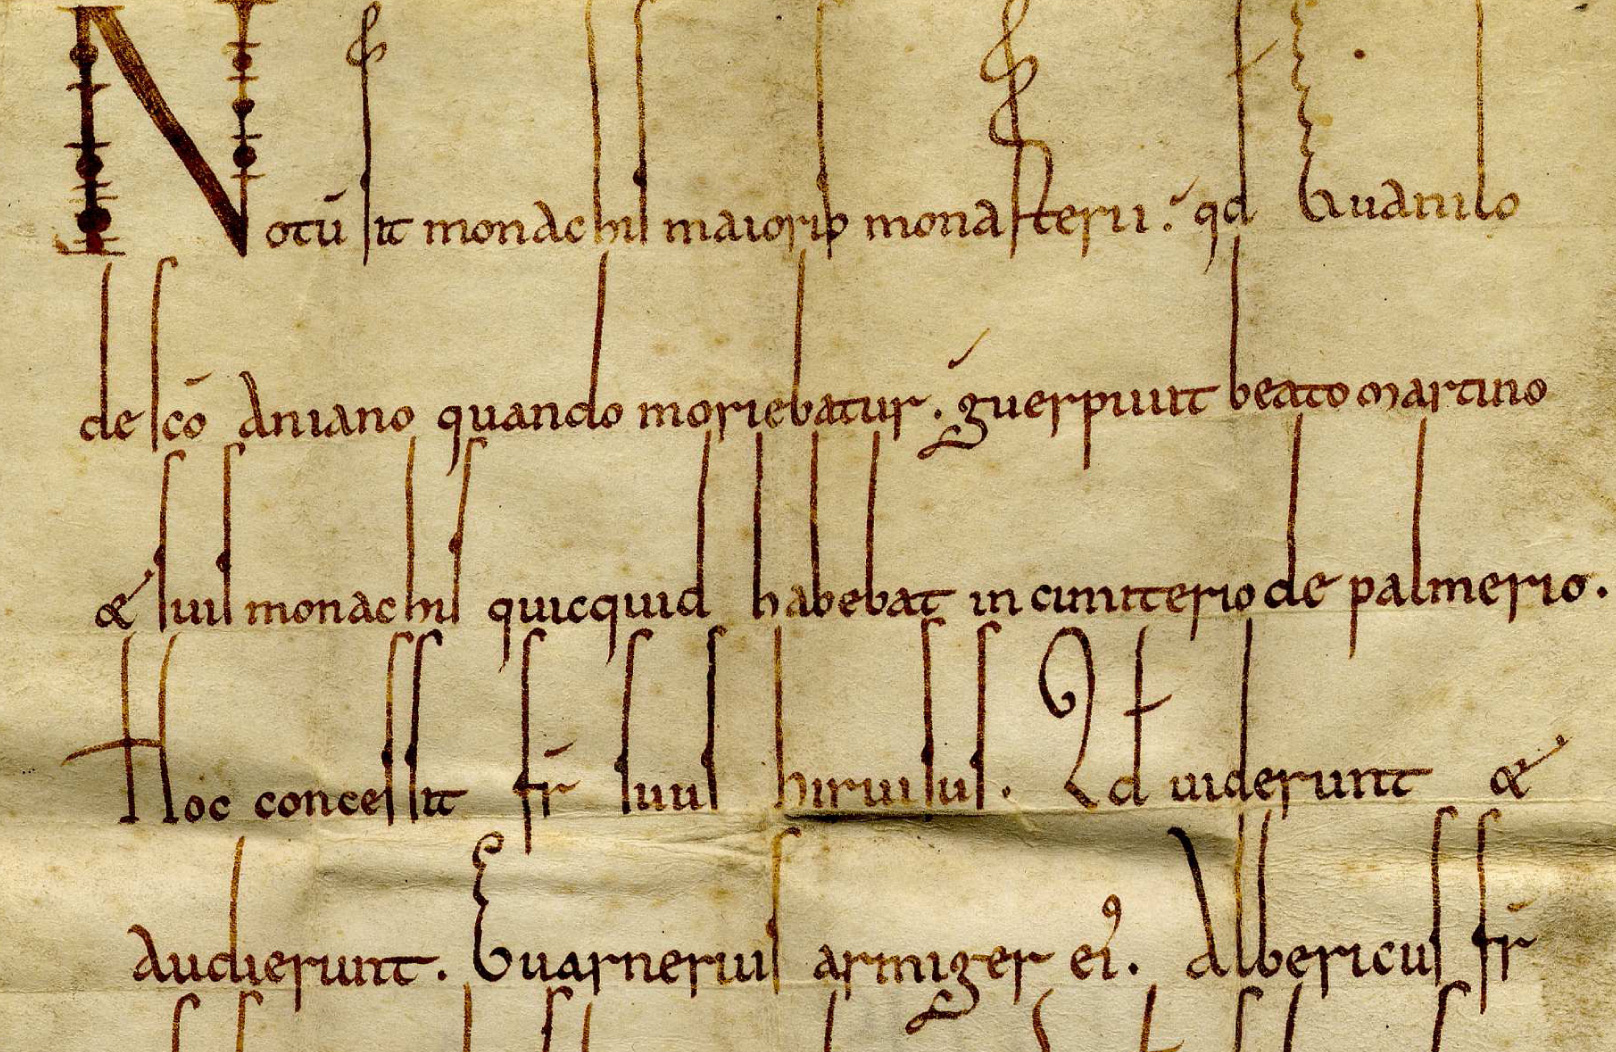 Notū sit monachis maioris monasterii. qd Guanilo
de sc̄o Aniano quando moriebatur. guerpiuit beato martino
& suis monachis quicquid habebat in cimiterio de palmerio.
Hoc concessit fr̄ suus hiruisus. Id uiderunt &
audierunt. Guarnerius armiger ei⁹. Albericus fr̄